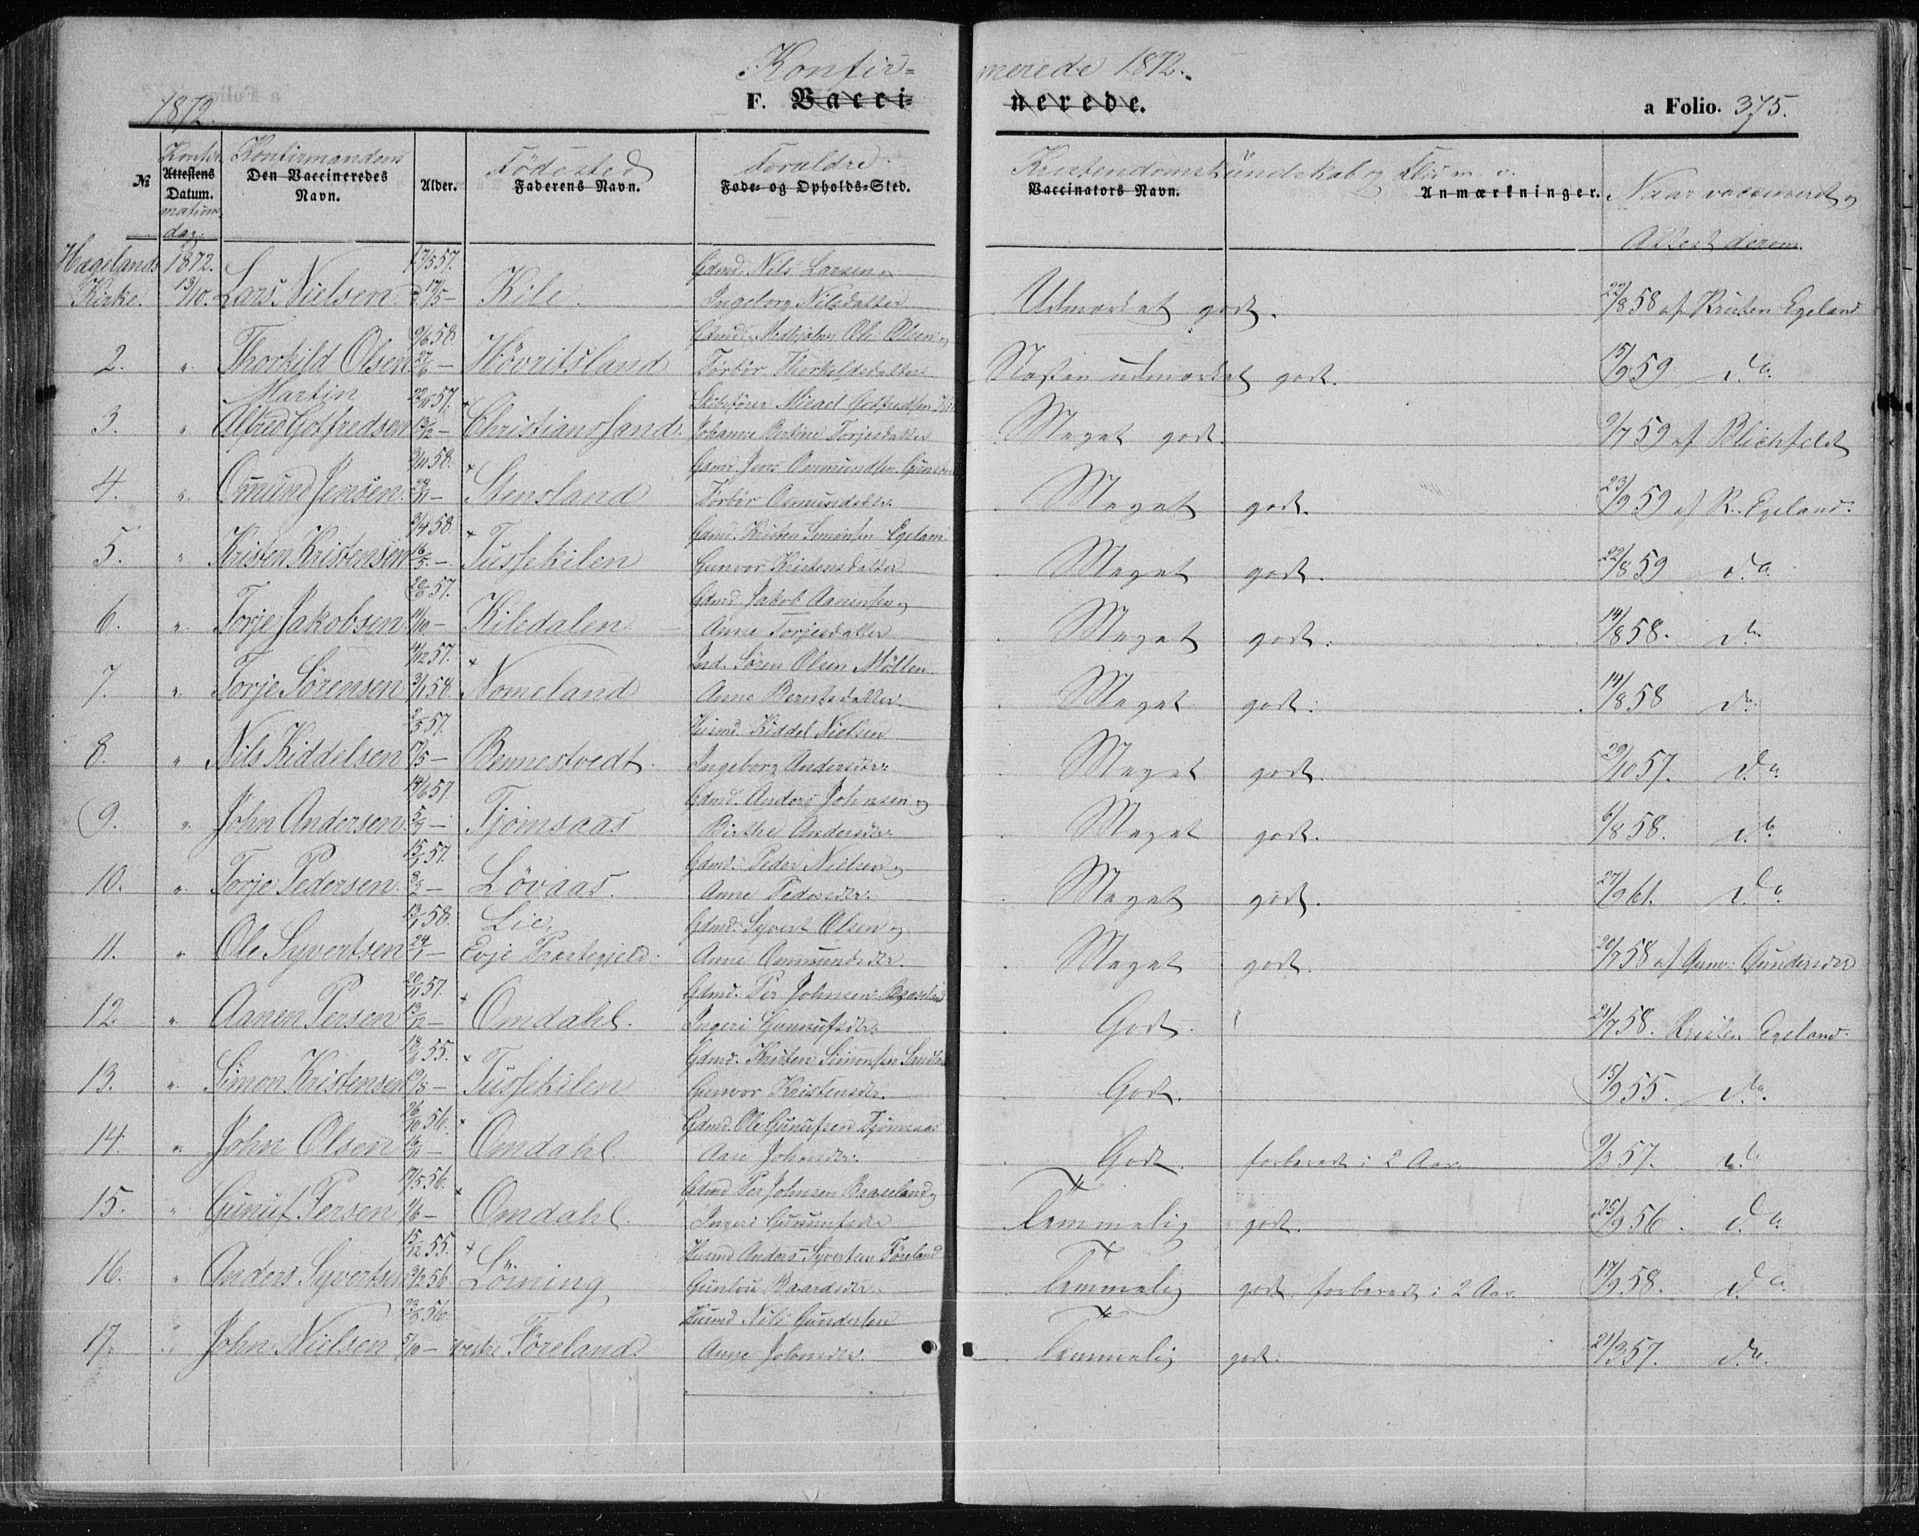 Konfir=
merede 1872.
1872.
F. Vacci-
nerede.
a Folio. 375.
№
Konfir
Attestens
Datum.
mations
dag.
Konfirmandens
Den Vaccineredes
Navn.
Alder.
Födested
Faderens Navn.
Foraldre.
Føde- og Opholds-Sted.
Kristendomskundskab og Flid
Vaccinators Navn.
Anmærkninger.
Naar vaccineret og
Attest derom.
Hægelands 1872. 17/5 57. Gdmd. Nils Larsen og
Kirke. 13/10. Lars Nielsen 17/5 — Kile Ingeborg Nilsdatter Udmærket godt. 22/8 58 af Kristen Egeland
9/6 58. Gdmd. Ole Olsen og
2. " Thorkild Olsen 27/6 — Hövritsland Torbör Therkeldsdatter Næsten udmærket godt. 15/9 59 do.
Martin 22/11 57. Skibsfører Micael Gotfredsen
3. " Alfred Gotfredsen 13/12 — Christianssand. Johanne Bertine Torjesdatter Meget godt. 9/7 59 af Blichfeldt
58. Gdmd. Jens Ommundsen
4. " Omund Jensen — Stensland Torbör Omundsdtr. Meget godt. 23/9 59 af K. Egeland.
3/4 58. Gdmd. Kristen Simonsen Egeland
5. " Kristen Kristensen 16/5 — Tussekilen Gunvor Kristensdatter Meget godt. 22/8 59 do.
57. Gdmd. Jakob Aanensen og
6. " Torje Jakobsen 11/10 — Kiledalen Anne Torjesdatter Meget godt. 14/8 58. do.
4/12 57. Ind. Sören Olsen Mölten
7. " Torje Sörensen 3/1 58. Nomeland Anne Berntsdatter. Meget godt. 14/8 58 do.
57. Husmd. Kiddel Nielsen
8. " Nils Kiddelsen 17/5 — Rennestvedt. Ingeborg Andersdtr: Meget godt. 29/10 57. do.
14/6 57. Gdmd. Anders Johnsen og
9. " John Andersen — Tjomsaas Birthe Andersdtr: Meget godt. 6/8 58. do.
57. Gdmd. Peder Nielsen og
10. " Torje Pedersen — Lövaas. Anne Pedersdtr: Meget godt. 27/9 61. do.
13/1 58. Lie, Gdmd. Syvert Olsen og
11. " Ole Syvertsen 24/1 — Evje Præstegjeld. Anne Ommundsdtr. Meget godt. 20/7 58 af Gunv: Gundersdtr
20/11 57. Gdmd. Per Johnsen Braseland
12. " Aanen Persen 13/12 — Omdahl. Ingeri Gunnufsdtr: Godt. 21/7 58. Kristen Egeland.
55. Gdmd. Kristen Simonsen
13. " Simon Kristensen — Tussekilen Gunvor Kristensdtr. Godt. 15/9 55. do.
26/10 56. Gdmd. Ole Gunufsen Tjomsaas
14. " John Olsen — Omdahl Ane Johnsdtr: Godt. forberedt i 2 Aar. 9/3 57. do.
17/5 56. Gdmd Per Johnsen Braseland og
15. " Gunuf Persen 1/6 — Omdahl. Ingeri Gunnufsdtr Temmelig godt. 25/9 56. do.
15/12 55. Husmd Anders Syvertsen Föreland
16. " Anders Syvertsen 3/2 56. Löining Gunlou Baardsdtr. Temmelig godt, forberedt i 2 Aar. 17/9 58. do.
56. Husmd Nils Gundersen
17. " John Nielsen 5/10 — vestre Föreland. Anne Johnsdtr. Temmelig godt. 21/3 57. do.